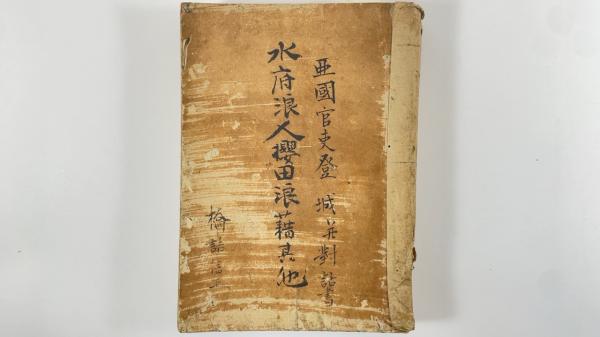 亜國官吏登城并對話書
水府浪人櫻田浪藉其他
橋詰